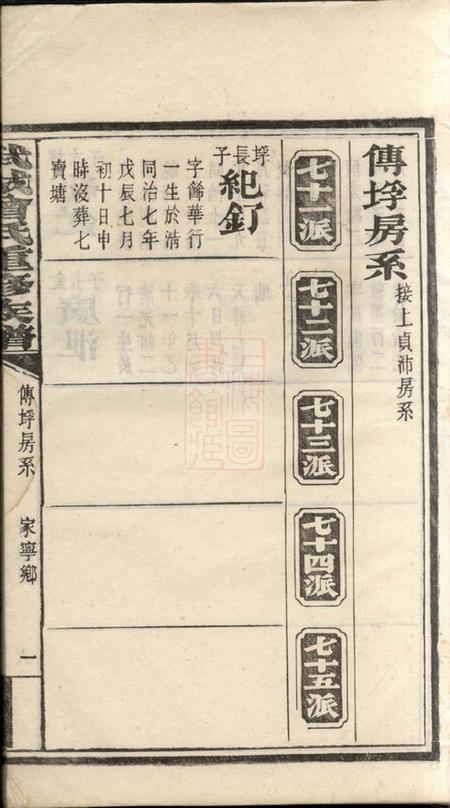 傳垺房系 接上貞沛房系
七十一派
七十二派
七十三派
七十四派
七十五派
垺長子 紀釘
字餙華行
一生於清
同治七年
戊辰七月
初十日申
時沒葬七
賣塘
武城曾氏重修族譜
傳垺房系
家寧鄉
一